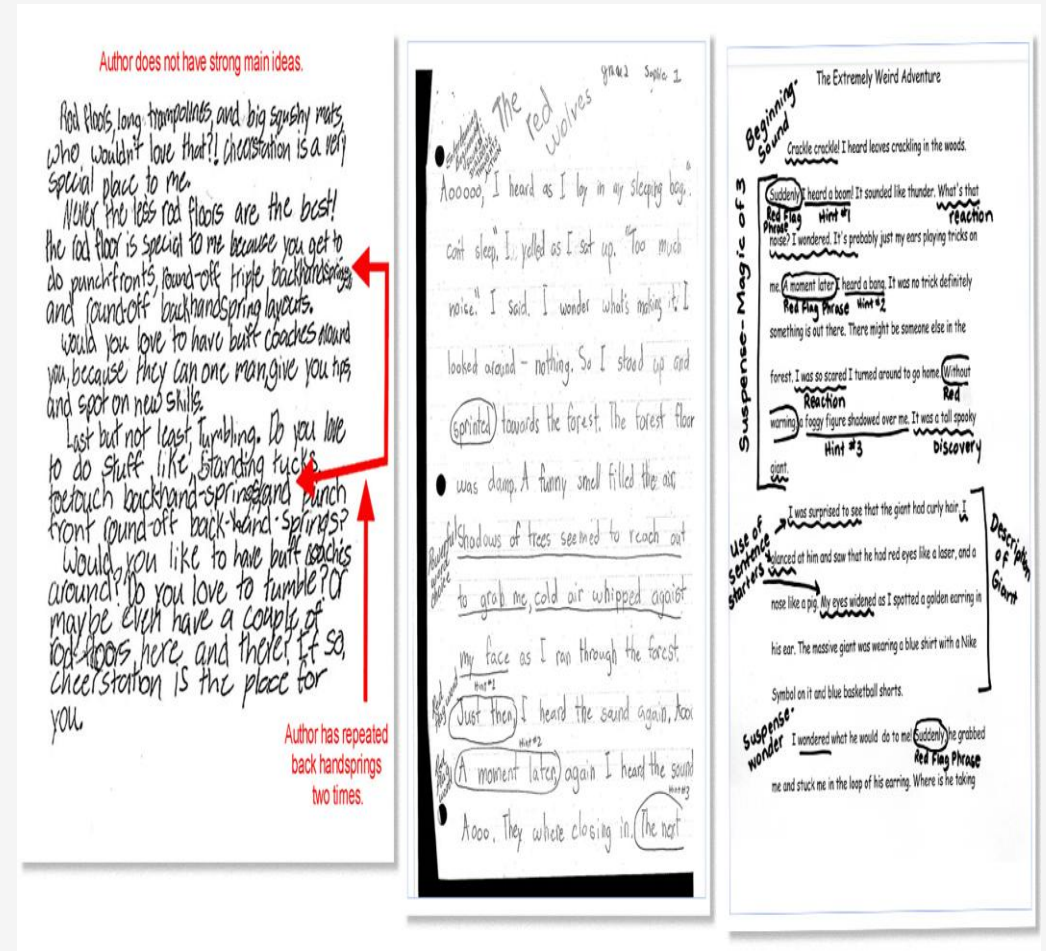 Author does not have strong main ideas.
Rod floors, long trampolines, and big squshy mats,
who wouldn't love that?! Cheerstation is a very
special place to me.
Never the less rod floors are the best!
the rod floor is special to me because you get to
do punchfronts, round-off triple backhandsprings
and round-off backhandspring layouts.
Would you love to have buff coaches around
you, because they can one man, give you tips,
and spot on new skills.
Last but not least, Tumbling. Do you love
to do stuff like, Standing tucks,
toetouch backhand-springs, and punch
front round-off back-hand-springs?
Would you like to have buff coaches
around? Do you love to tumble? Or
maybe even have a couple of
rod-floors here and there? If so,
cheerstation is the place for
you.
Author has repeated
back handsprings
two times.
grade 2 Sophie 1
The
red
wolves
Aooooo, I heard as I lay in my sleeping bag. "I
can't sleep", I yelled as I sat up. "Too much
noise." I said. I wonder what's making it? I
looked around - nothing. So I stood up and
sprinted towards the forest. The forest floor
was damp. A funny smell filled the air.
Powerful word choice
Shadows of trees seemed to reach out
to grab me, cold air whipped agaist
my face as I ran through the forest.
Hint #1
Red flag word
Just then, I heard the sound again, Aooo
Hint #2
Red flag word
A moment later, again I heard the sound
Hint #3
Aooo. They where closing in. The next
The Extremely Weird Adventure
Beginning-
Sound
Crackle crackle! I heard leaves crackling in the woods.
Suspense-Magic of 3
Suddenly I heard a boom! It sounded like thunder. What's that
Red Flag Phrase Hint #1 reaction
noise? I wondered. It's probably just my ears playing tricks on
me. A moment later I heard a bang. It was no trick definitely
Red Flag Phrase Hint #2
something is out there. There might be someone else in the
forest. I was so scared I turned around to go home. Without
Reaction Red
warning a foggy figure shadowed over me. It was a tall spooky
Hint #3 Discovery
giant.
Use of sentence starters
I was surprised to see that the giant had curly hair. I
glanced at him and saw that he had red eyes like a laser, and a
nose like a pig. My eyes widened as I spotted a golden earring in
his ear. The massive giant was wearing a blue shirt with a Nike
Symbol on it and blue basketball shorts.
Description of Giant
Suspense-
wonder
I wondered what he would do to me! Suddenly he grabbed
Red Flag Phrase
me and stuck me in the loop of his earring. Where is he taking